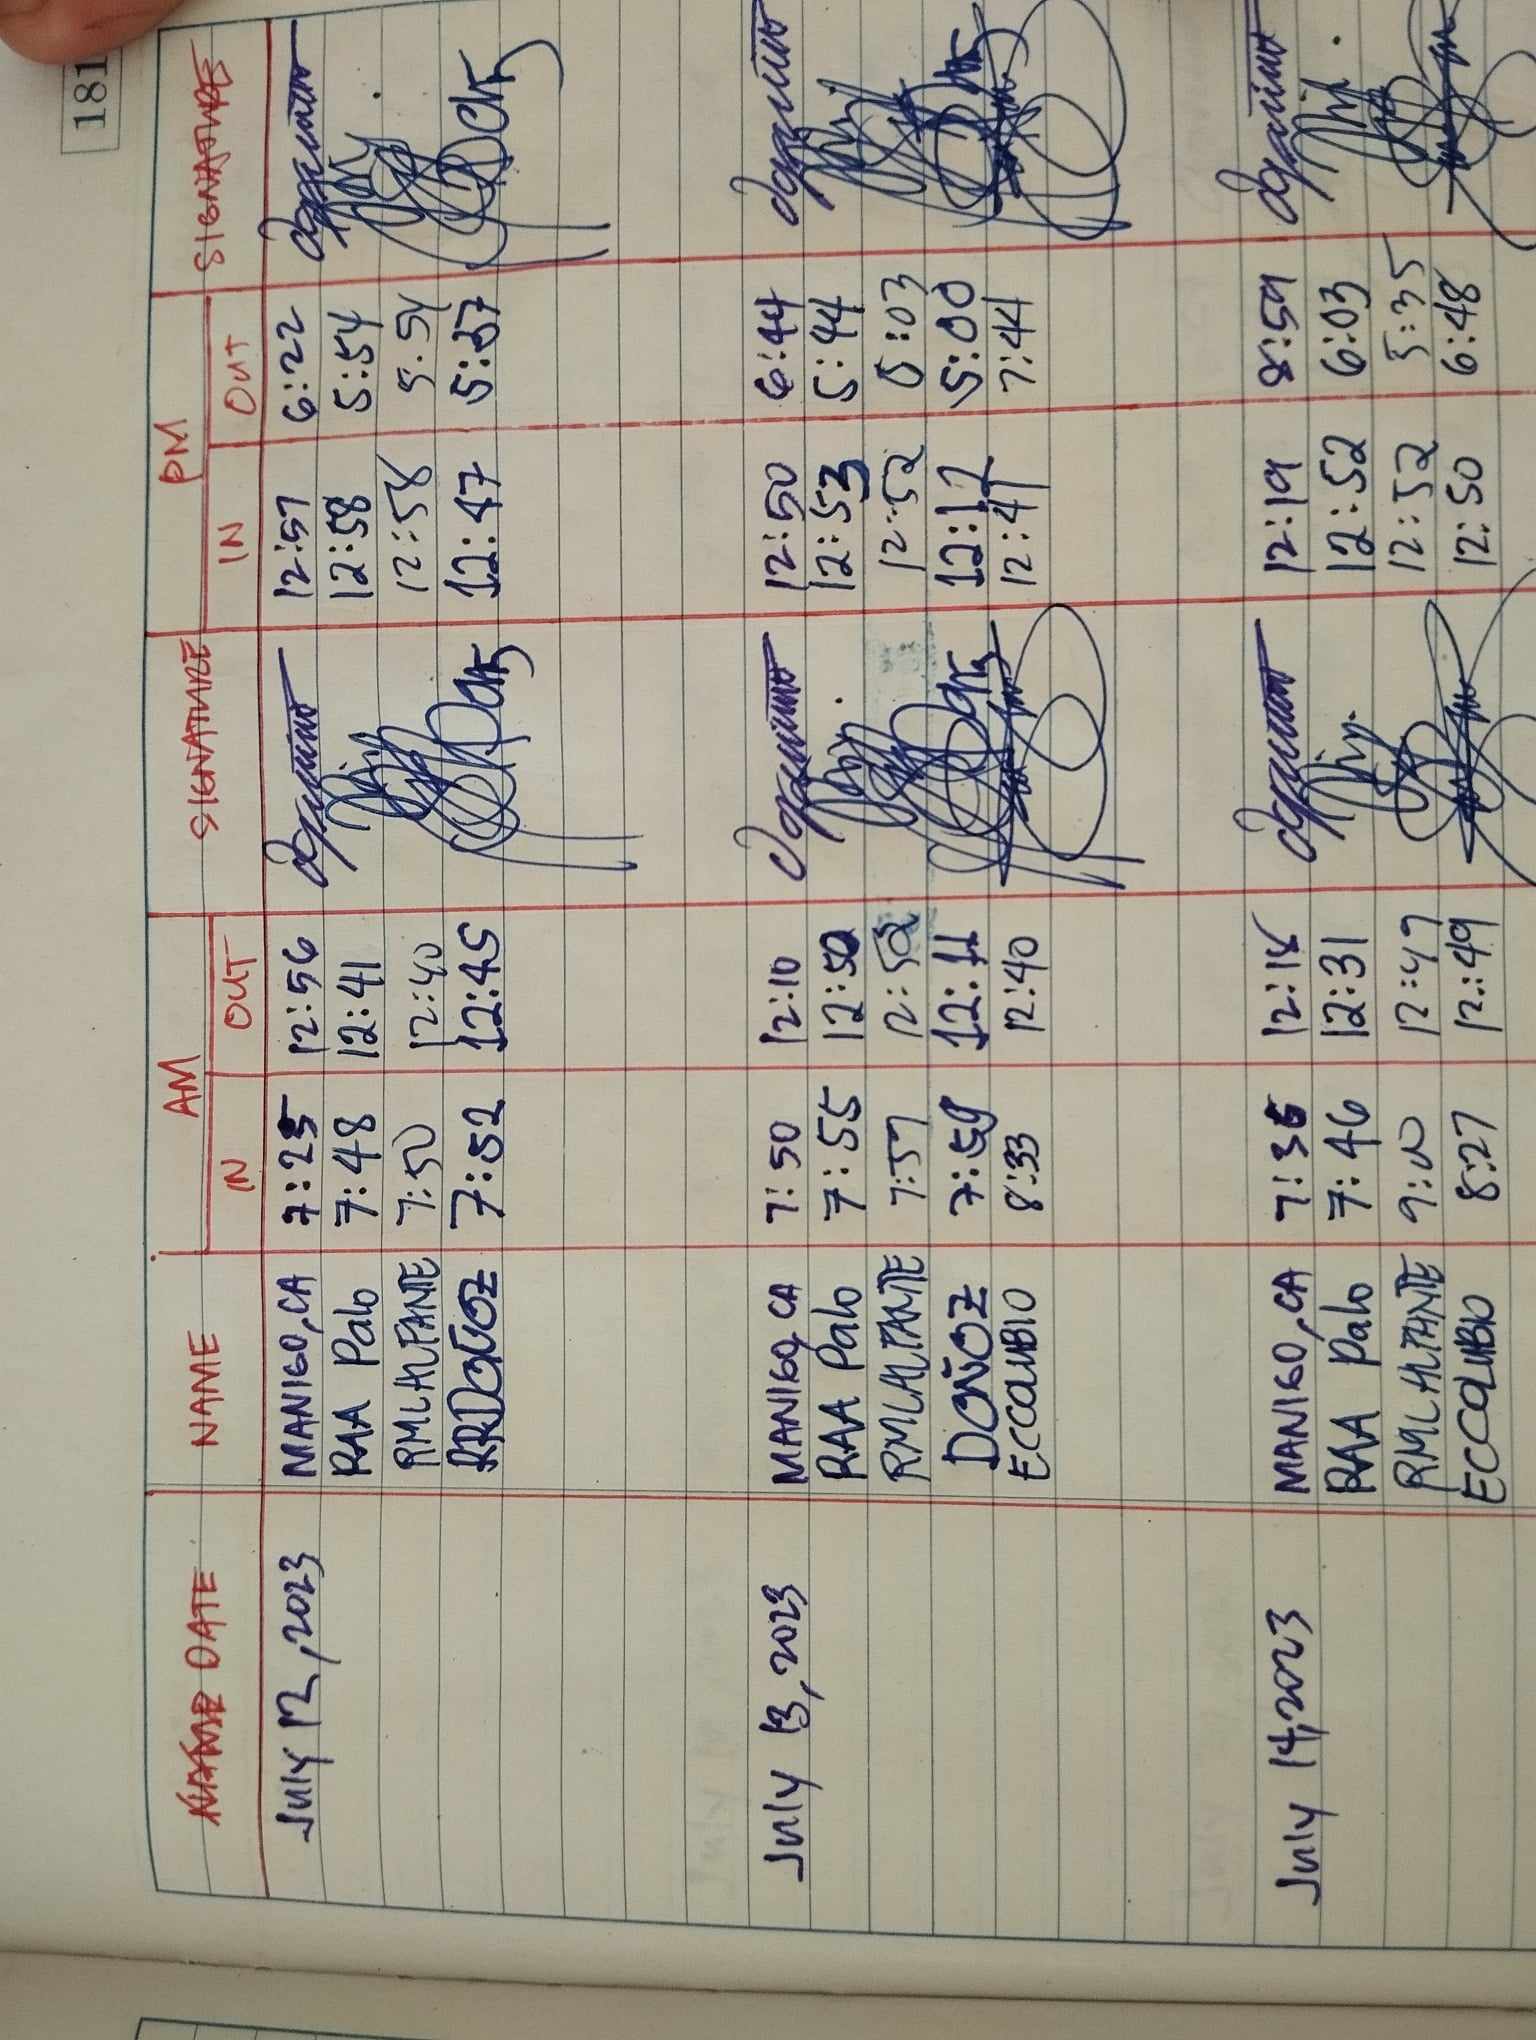 181
DATE NAME AM SIGNATURE PM SIGNATURE
IN OUT IN OUT
July 12, 2023 MANIGO, CA 7:25 12:56 12:57 6:22
RAA Palo 7:48 12:41 12:58 5:54
RMLALTANTE 7:50 12:40 12:58 5:54
RRDOÑOZ 7:52 12:45 12:47 5:57
July 13, 2023 MANIGO, CA 7:50 12:10 12:50 6:44
RAA Palo 7:55 12:50 12:53 5:44
RMLALTANTE 7:57 12:52 12:52
DOÑOZ 7:59 12:11 12:12 5:00
ECCOLUMBIO 8:33 12:40 12:41 7:41
July 14, 2023 MANIGO, CA 7:36 12:18 12:19 8:59
RAA Palo 7:46 12:31 12:52 6:03
RMLALTANTE 9:00 12:47 12:52 5:35
ECCOLUMBIO 8:27 12:49 12:50 6:48